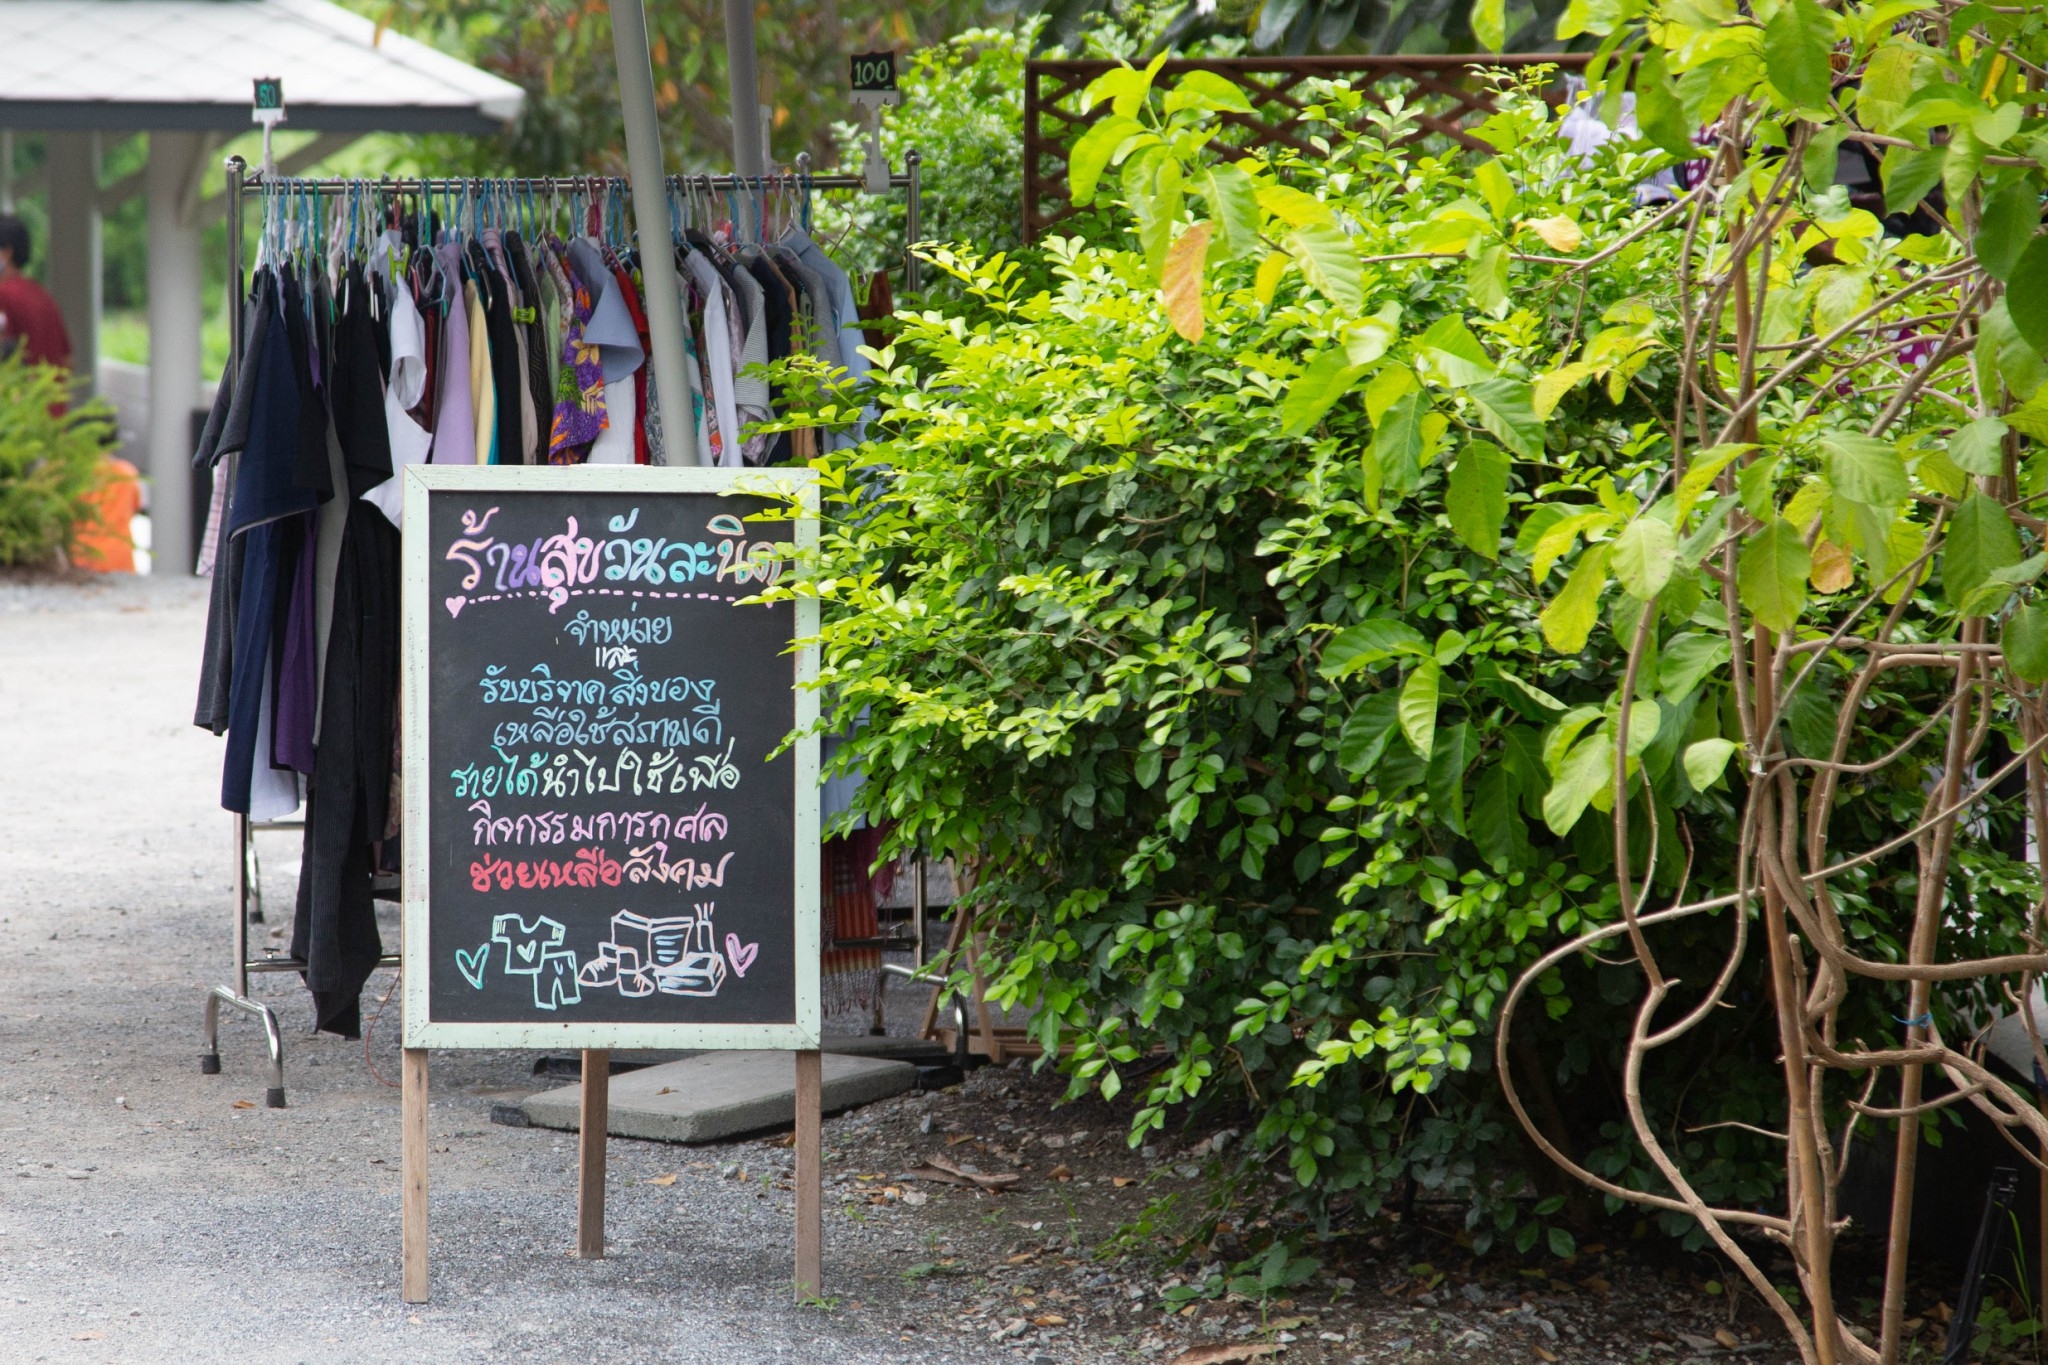 50
100
ร้านสุขวันละนิด
จำหน่าย
และ
รับบริจาค สิ่งของ
เหลือใช้สภาพดี
รายได้นำไปใช้เพื่อ
กิจกรรมการกุศล
ช่วยเหลือสังคม